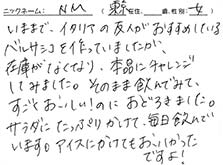 ニックネーム: NM (東京在住、 歳、性別: 女)
いままで、イタリアの友人がおすすめしている
バルサミコを作っていましたが、
在庫がなくなり、本品にチャレンジ
してみました。そのまま飲んでみて、
すごくおーいしい!のにおどろきました。
サラダにたっぷりかけて、毎日飲んで
います。アイスにかけてもおーいしかった
ですよ!